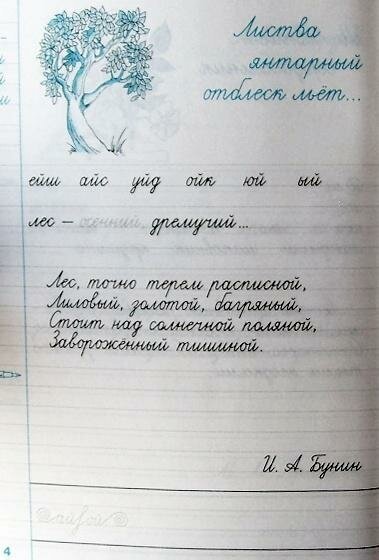 Листва
янтарный
отблеск льёт...
ейш айс уйд ойк юй ый
лес – осенний, дремучий...
Лес, точно терем расписной,
Лиловый, золотой, багряный,
Стоит над солнечной поляной,
Заворожённый тишиной.
И. А. Бунин
4